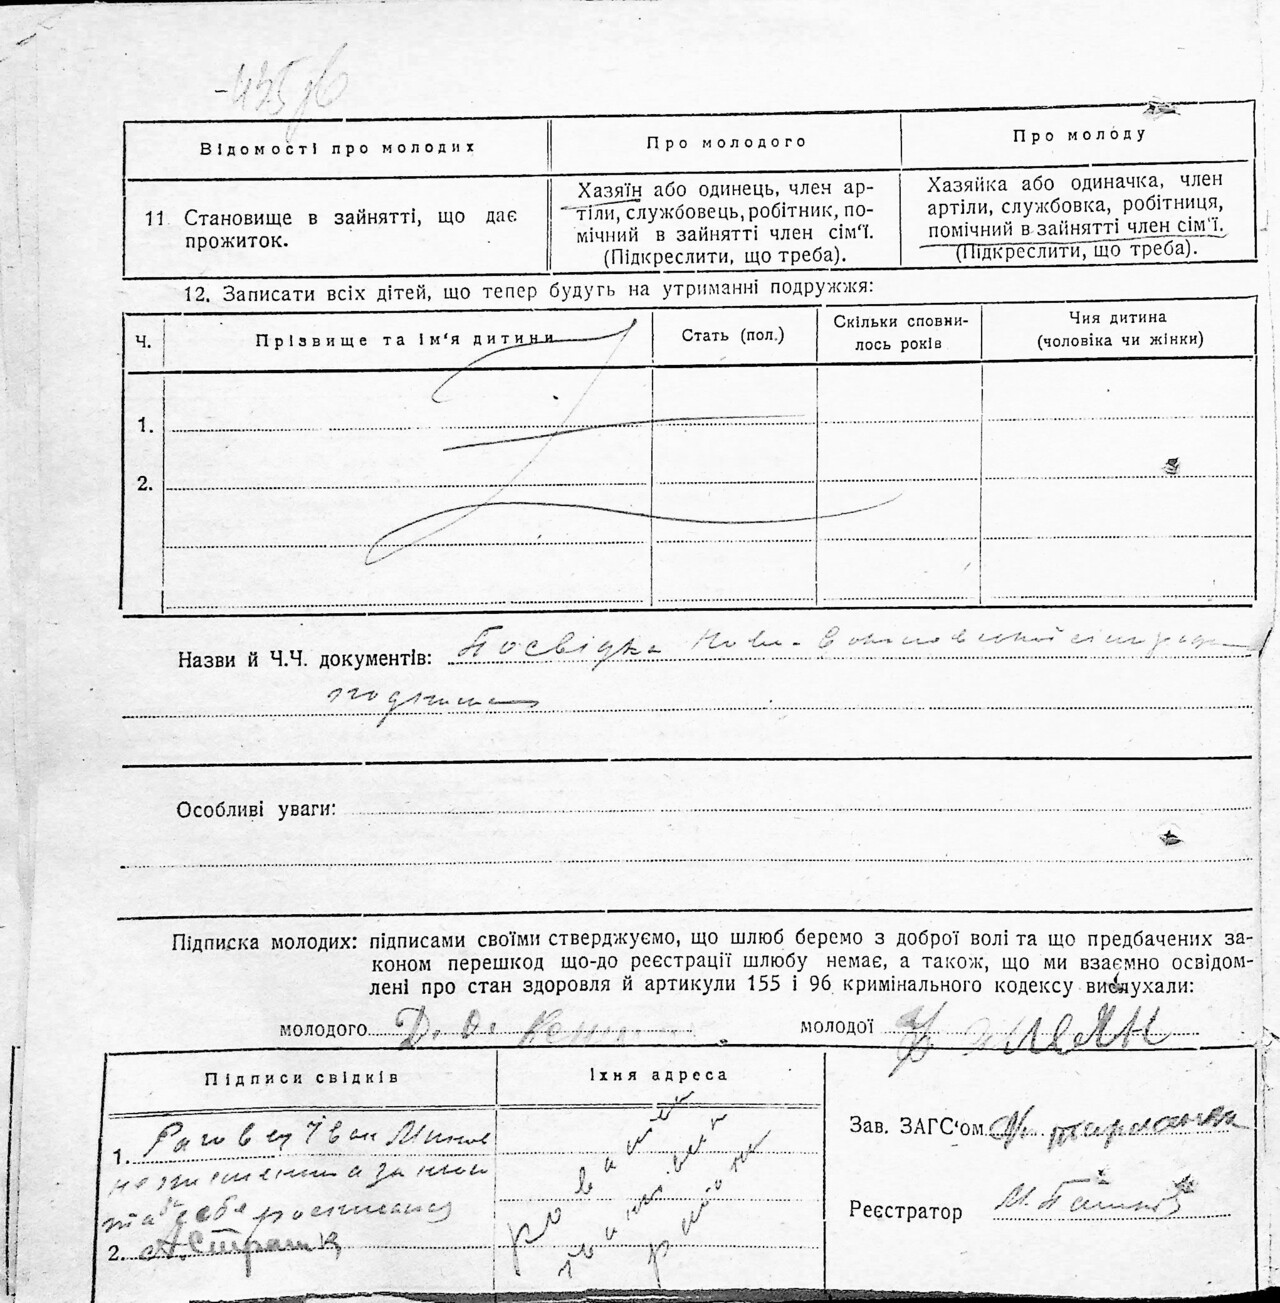 Відомості про молодих
Про молодого
Про молоду
11 Становище в зайнятті, що дає
прожиток.
Хазяїн або одинець, член ар-
тіли, службовець, робітник, по-
мічний в зайнятті член сім'ї.
(Підкреслити, що треба).
Хазяйка або одиначка, член
артіли, службовка, робітниця,
помічний в зайнятті член сім'ї.
(Підкреслити, що треба).
12. Записати всіх дітей, що тепер будуть на утриманні подружжя:
Ч.
Прізвище та ім'я дитини
Стать (пол.)
Скільки сповни-
лось років
Чия дитина
(чоловіка чи жінки)
1.
2.
Назви й Ч.Ч. документів: Посвідка Ново-
Особливі уваги:
Підписка молодих: підписами своїми стверджуємо, що шлюб беремо з доброї волі та що предбачених за-
коном перешкод що-до реєстрації шлюбу немає, а також, що ми взаємно освідом-
лені про стан здоровля й артикули 155 і 96 кримінального кодексу вислухали:
молодого Д. О.
молодої
Підписи свідків
Їхня адреса
1. Іван
2.
Зав. ЗАГС'ом
Реєстратор М.